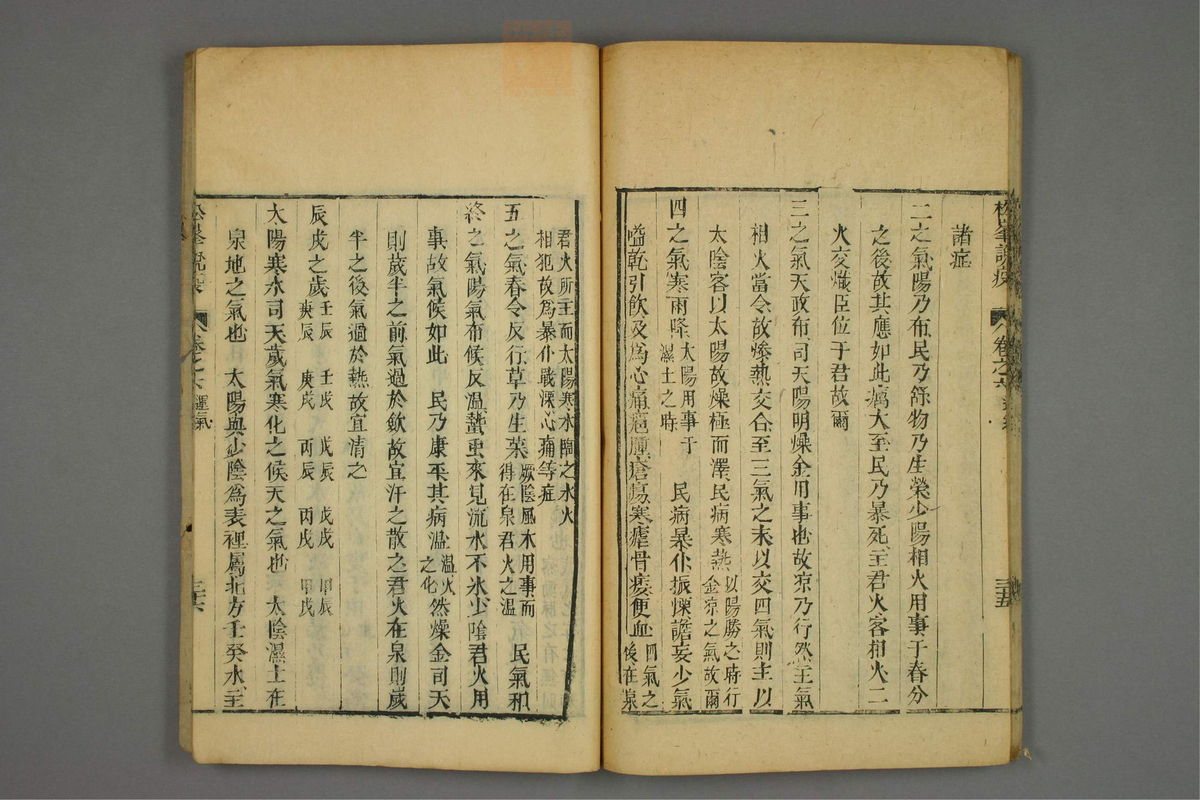 松峯說疫 卷之六 運氣 三十五
諸症
二之氣陽乃布民乃舒物乃生榮少陽相火用事于春分
之後故其應如此癘大至民乃暴死主君火客相火二
火交熾臣位于君故爾
三之氣天政布司天陽明燥金用事也故凉乃行然主氣
相火當令故㷟熱交合至三氣之末以交四氣則主以
太陰客以太陽故燥極而澤民病寒熱以陽勝之時行
金凉之氣故爾
四之氣寒雨降太陽用事于
濕土之時
民病暴仆振慄譫妄少氣
嗌乾引飲及爲心痛癰腫瘡瘍寒瘧骨痿便血四氣之
後在泉
君火所主而太陽寒水臨之水火
相犯故爲暴仆戰慄心痛等症
五之氣春令反行草乃生菜厥陰風木用事而
得在泉君火之溫
民氣和
終之氣陽氣布候反溫蟄蟲來見流水不氷少陰君火用
事故氣候如此民乃康平其病溫溫火
之化
然燥金司天
則歲半之前氣過於歛故宜汗之散之君火在泉則歲
半之後氣過於熱故宜清之
辰戌之歲壬辰 壬戌 戊辰 戊戌 甲辰
庚辰 庚戌 丙辰 丙戌 甲戌
太陽寒水司天歲氣寒化之候天之氣也太陰濕土在
泉地之氣也太陽與少陰爲表裡屬北方壬癸水主
松峯說疫 卷之六 運氣 三十六